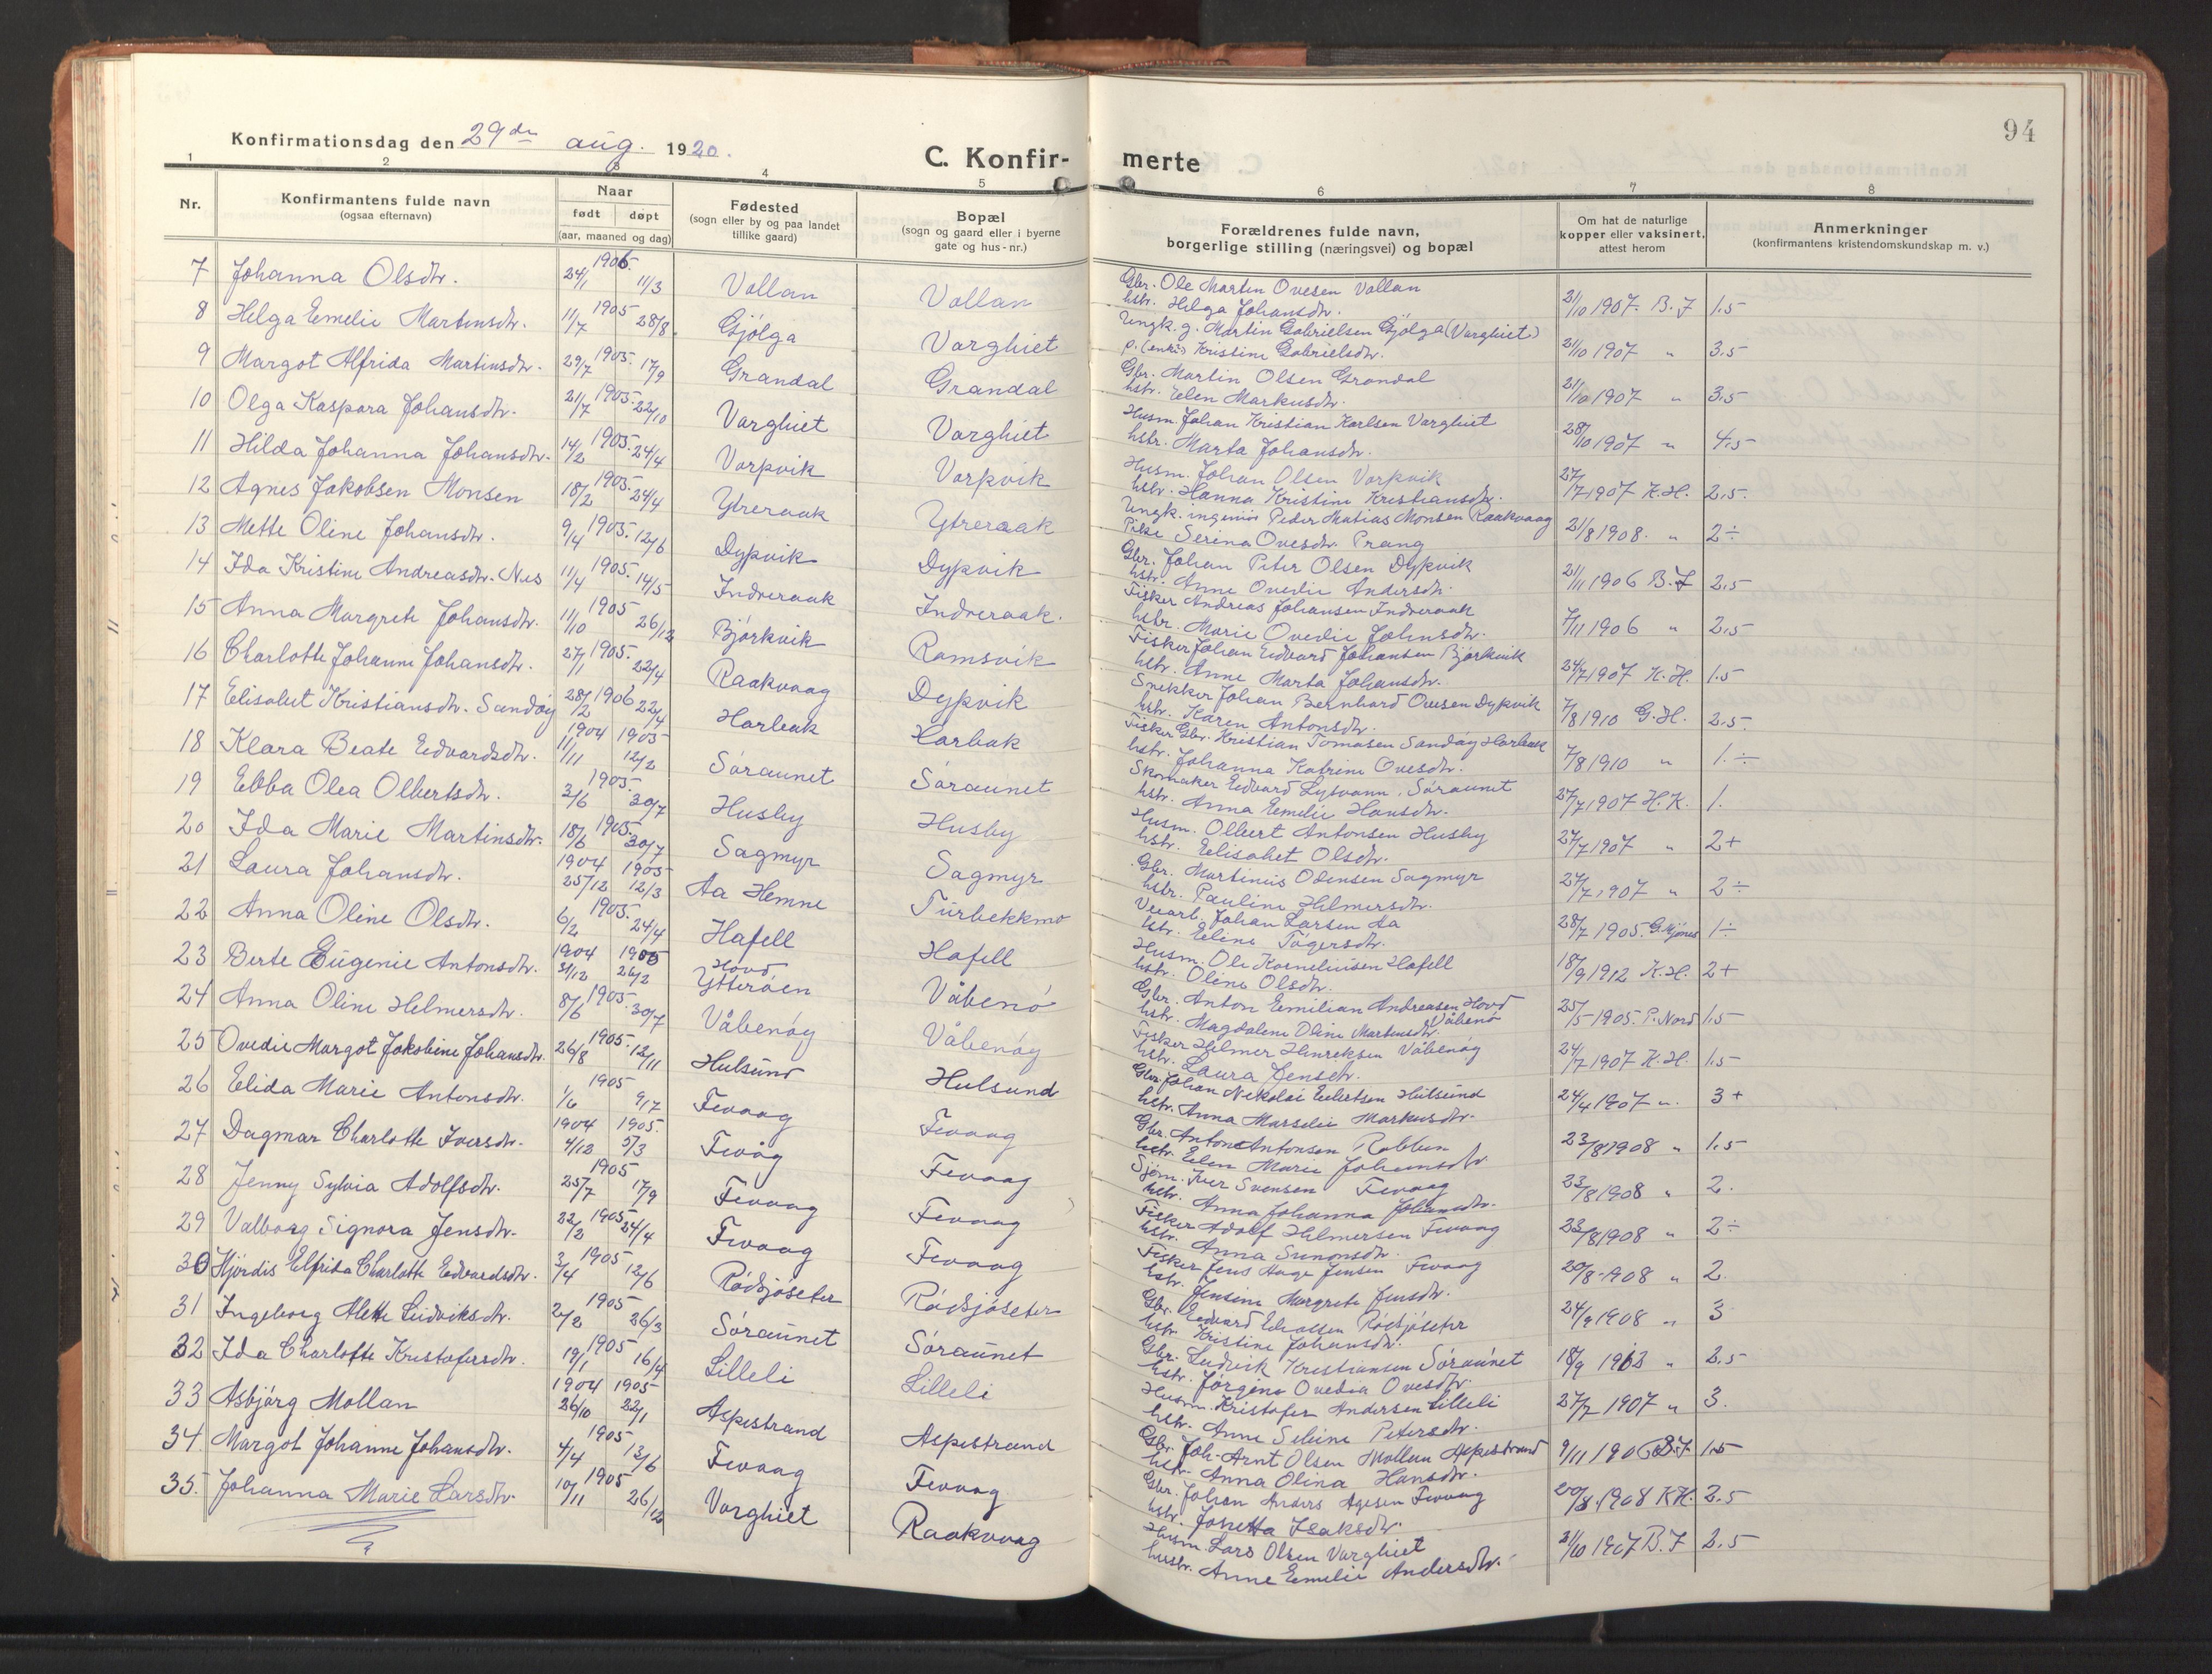 94
Konfirmationsdag den 29de aug. 1920.
C. Konfirmerte
1 2 3 4 5 6 7 8
Nr.
Konfirmantens fulde navn
(ogsaa efternavn)
Naar
født døpt
(aar, maaned og dag)
Fødested
(sogn eller by og paa landet
tillike gaard)
Bopæl
(sogn og gaard eller i byerne
gate og hus-nr.)
Forældrenes fulde navn,
borgerlige stilling (næringsvei) og bopæl
Om hat de naturlige
kopper eller vaksinert,
attest herom
Anmerkninger
(konfirmantens kristendomskundskap m. v.)
7 Johanna Olsdtr. 1905. 24/1 11/3 Vollan Vollan Gbr. Ole Martin Ovesen Vollan 21/10 1907. B.J 1.5
hstr. Helga Johansdtr.
8 Helga Emelie Martinsdtr. 1905 11/7 28/8. Gjølga Varghiet Ungk. g. Martin Gabrielsen Gjølga (Varghiet) 21/10 1907 " 3.5
p. (enke) Kristine Gabrielsdtr.
9 Margot Alfrida Martinsdtr. 1905. 29/7 17/9 Grandal Grandal Gbr. Martin Olsen Grandal 21/10 1907 " 3.5
hstr. Elen Markusdtr.
10 Olga Kaspara Johansdtr. 1905. 21/7 22/10 Varghiet Varghiet Husm. Johan Kristian Karlsen Varghiet 28/10 1907 " 4.5
hstr. Marta Johansdtr.
11 Hilda Johanna Johansdtr. 1905. 14/2 24/4 Vorpvik Vorpvik Husm. Johan Olsen Vorpvik 27/7 1907 K.H. 2.5.
hstr. Hanna Kristine Kristiansdtr.
12 Agnes Jakobsen Monsen 1905. 18/2 24/4 Ytreraak Ytreraak Ungk. ingeniør Peder Matias Monsen Raakvaag 21/8 1908. " 2÷
Pike Serina Ovesdtr. Prang
13 Mette Oline Johansdtr. 1905. 9/4 12/6 Dypvik Dypvik Gbr. Johan Peter Olsen Dypvik 21/11 1906 B.J 2.5
hstr. Anne Ovedie Andersdtr.
14 Ida Kristine Andreasdtr. Nes 1905. 11/4 14/5 Indreraak Indreraak. Fisker Andreas Johansen Indreraak 7/11 1906 " 2.5
hstr. Marie Ovedie Johnsdtr.
15 Anna Margrete Johansdtr. 1905 11/10 26/12 Bjørkvik Ramsvik Fisker Johan Edvard Johansen Bjørkvik 24/7 1907 K.H. 1.5
hstr. Anne Marta Johansdtr.
16 Charlotte Johanne Johansdtr. 1905. 27/1 22/4 Raakvaag Dypvik Snekker Johan Bernhard Ovesen Dypvik 7/8 1910 G.H. 2.5.
hstr. Karen Antonsdtr.
17 Elisabet Kristiansdtr. Sandøy 1906 28/2 22/4 Harbak Harbak Fisker Gbr. Kristian Tomasen Sandøy Harbak 7/8 1910 " 1.÷
hstr. Johanna Katrine Ovesdtr.
18 Klara Beate Edvardsdtr. 1904 1905 11/11 12/2 Søraunet Søraunet Skomaker Edvard Lysvann. Søraunet 27/7 1907 H.K. 1.
hstr. Anna Emelie Hansdtr.
19 Ebba Olea Olbertsdtr. 1905. 3/6 30/7 Husby Husby Husm. Olbert Antonsen Husby 27/7 1907 " 2+
hstr. Elisabet Olsdtr.
20 Ida Marie Martinsdtr. 1905. 18/6 30/7 Sagmyr Sagmyr Gbr. Martinus Odensen Sagmyr 27/7 1907 " 2÷
hstr. Pauline Hilmersdtr.
21 Laura Johansdtr. 1904 1905 25/12 12/3 Aa Hemne Turbekkmo Veiarb. Johan Larsen Aa 28/7 1905. G. Mjønes 1÷
hstr. Eline Tøgersdtr.
22 Anna Oline Olsdtr. 1905. 6/2 24/4 Hafell Hafell Husm. Ole Korneliussen Hafell 18/9 1912 K.H. 2+
hstr. Oline Olsdtr.
23 Berte Eugenie Antonsdtr. 1904 1905 31/12 26/2 Hovd Ytterøen Våbenø Gbr. Anton Emilian Andreasen Hovd Våbenø 25/5 1905. P. Nord 1.5
hstr. Magdalene Oline Martinsdtr.
24 Anna Oline Helmersdtr. 1905. 8/6 30/7 Våbenøy Våbenøy Fisker Helmer Henreksen Våbenøy 24/7 1907 K.H. 1.5
hstr. Laura Jensdtr.
25 Ovedie Margot Jakobine Johansdtr. 1905. 26/8 12/11 Hulsund Hulsund Gbr. Johan Nikolai Eilertsen Hulsund 24/4 1907 ". 3+
hstr. Anna Marselie Markusdtr.
26 Elida Marie Antonsdtr. 1905 1/6 9/7 Fevaag Fevaag Gbr. Anton Antonsen Rabben 23/8 1908 " 1.5
hstr. Elen Marie Johansdtr
27 Dagmar Charlotte Iversdtr. 1904 1905. 4/12 5/3 Fevåg Fevaag Sjøm. Iver Svensen Fevaag 23/8 1908 " 2.
hstr. Anna Johanna Johansdtr.
28 Jenny Sylvia Adolfsdtr. 1905 25/7 17/9 Fevaag Fevaag Fisker Adolf Helmersen Fevaag 23/8 1908 " 2÷
hstr. Anna Simonsdtr.
29 Valborg Signora Jensdtr. 1905 22/2 24/4 Fevaag Fevaag Fisker Jens Hage Jensen Fevaag 20/8-1908 " 2.
hstr. Jensine Margrete Jensdtr.
30 Hjørdis Elfrida Charlotte Edvardsdtr. 1905 3/4 12/6 Rødsjøseter Rødsjøseter Gbr. Edvard Rødsjøseter 24/9 1908 " 3
hstr. Kristine Johansdtr.
31 Ingeborg Mette Ludviksdtr. 1905 2/2 26/3 Søraunet Søraunet Gbr. Ludvik Kristiansen Søraunet 18/9 1912 " 2.5
hstr. Jørgine Ovedia Ovesdtr.
32 Ida Charlotte Kristofersdtr. 1905 19/1 16/4 Lilleli Lilleli Husm. Kristofer Andersen Lilleli 27/7 1907 " 3.
hstr. Anne Seline Petersdtr.
33 Asbjørg Mollan 1904 1905 26/10 22/1 Aspestrand Aspestrand Gbr. Joh. Arnt Olsen Mollan Aspestrand 9/11 1906 B.J 1.5
hstr. Anna Olina Hansdtr.
34 Margot Johanne Johansdtr. 1905 4/4 12/6 Fevaag Fevaag Gbr. Johan Anders Agesen Fevaag 20/8.1908 K.H. 2.5
hstr. Josetta Isaksdtr.
35. Johanna Marie Larsdtr. 1905 10/11 26/12 Varghiet Raakvaag Husm. Lars Olsen Varghiet 21/10 1907 B.J 2.5
hustr. Anne Emelie Andersdtr.